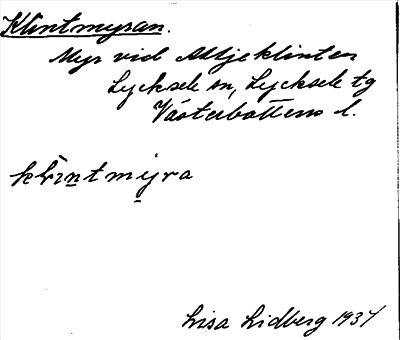 Klintmyran.
Myr vid Altjeklinten
Lycksele sn, Lycksele tg
Västerbottens l.
klintmyra
Lisa Lidberg 1937